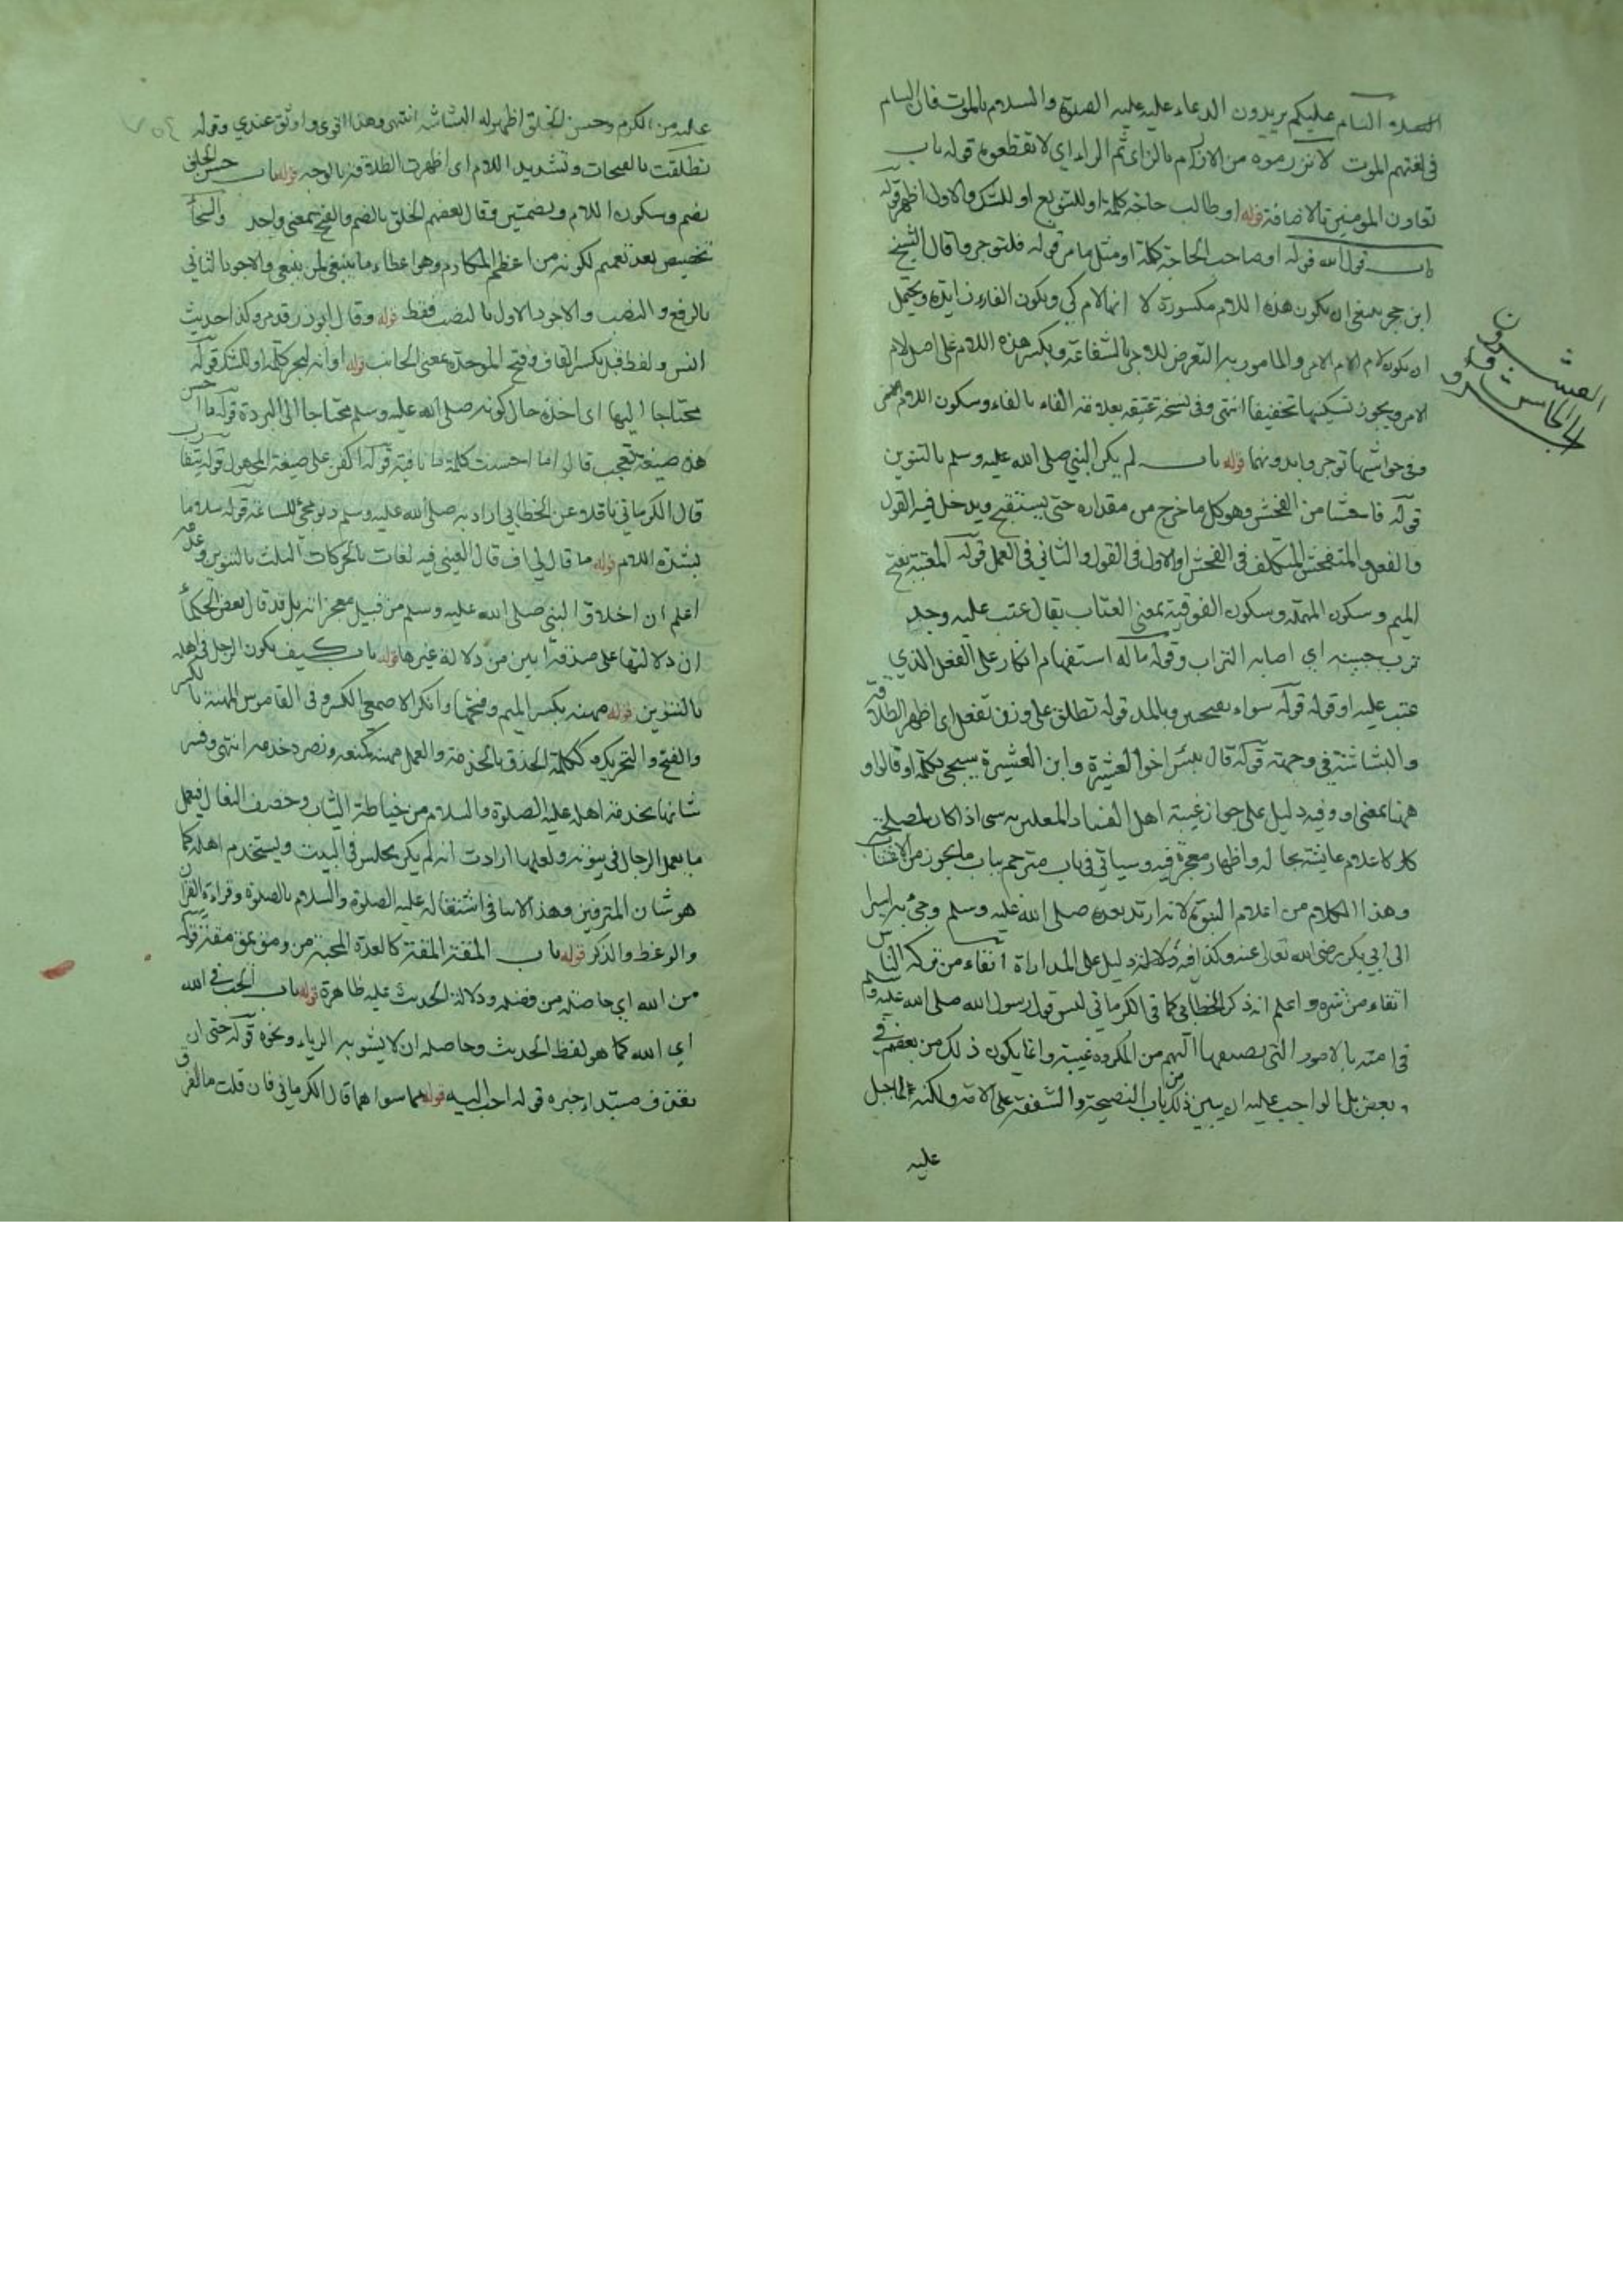 السام عليكم يريدون الدعاء عليه عليه الصلوة والسلام بالموت فان السام
في لغتهم الموت لا تزرموه من الازرام بالزاي ثم الراء اي لا تقطعوه قوله باب
تعاون المومنين بالاضافة قوله او طالب حاجة كلمة او للتنويع او للشك والاول اظهر قوله
باب قول الله قوله او صاحب الحاجة كلمة او مثل ما مر قوله فلتوجروا قال الشيخ
ابن حجر ينبغي ان يكون هذه اللام مكسورة لانها لام كي ويكون الفاء زايدة ويحتمل
ان يكون لام الامر والمامور به التعرض للاجر بالشفاعة وبكسر هذه اللام على اصل لام
الامر ويجوز تسكينها تخفيفا انتهى وفي نسخة عتيقة بعلامة الفاء بالفاء وسكون اللام
وفي حواشيها توجروا بدونهما قوله باب لم يكن النبي صلى الله عليه وسلم بالتنوين
قوله فاحشا من الفحش وهو كل ما خرج من مقداره حتى يستقبح ويدخل فيه القول
والفعل والمتفحش المتكلف في الفحش او الاول في القول والثاني في العمل قوله المعتبة بفتح
الميم وسكون المهملة وسكون الفوقية بمعنى العتاب يقال عتب عليه وجد
ترب جبينه اي اصابه التراب وقوله ما له استفهام انكار على الفعل الذي
عتب عليه او قوله قوله سواء بفتحتين وبالمد قوله تطلق على وزن تفعل اي اظهر الطلاقة
والبشاشة في وجهه قوله قال بئس اخو العشيرة وابن العشيرة سيجيء بكلمة او قالوا و
ههنا بمعنى او وفيه دليل على جواز غيبة اهل الفساد المعلنين به سيما اذا كان لمصلحة
كان كاعلام عايشة بحاله واظهار معجزة فيه وسياتي في باب مترجم بباب ما يجوز من الاغتياب
وهذا الكلام من اعلام النبوة لانه ارتد بعده صلى الله عليه وسلم وجيء به اسيرا
الى ابي بكر رضي الله تعالى عنه وكذا فيه دلالة دليل على المداراة اتقاء من تركه الناس
اتقاء من شره واعلم انه ذكر الخطابي كما في الكرماني ليس قول رسول الله صلى الله عليه وسلم
في امته بالامور التي يصفها اليهم من المكروه غيبة وانما يكون ذلك من بعضهم في
بعض بل الواجب عليه ان يبين ذلك من باب النصيحة والشفقة على الامة ولكنه لما جبل
عليه
العشرون
الجزء الخامس و
عليه من الكرم وحسن الخلق اظهر له البشاشة انتهى وهذا اقوى واوثق عندي وقوله
تطلقت بالفتحات وتشديد اللام اي اظهرت الطلاقة بالوجه قوله باب حسن الخلق
بضم وسكون اللام وبضمتين وقال بعضهم الخلق بالضم والفتح بمعنى واحد والسخاء
تخصيص بعد تعميم لكونه من اعظم المكارم وهو اعطاء ما ينبغي لمن ينبغي والاجود الثاني
بالرفع والنصب والاجود الاول بالنصب فقط قوله وقال ابو ذر قد مر وكذا حديث
انس ولفظ قبل بكسر القاف وفتح الموحدة بمعنى الجانب قوله او انه لبحر كلمة او للشك قوله
محتاجا اليها اي اخذه حال كونه صلى الله عليه وسلم محتاجا الى البردة قوله ما احسن
هذه صيغة تعجب قالوا ما احسنت كلمة ما نافية قوله اكفن على صيغة المجهول قوله يتقارب
قال الكرماني ناقلا عن الخطابي اراد به صلى الله عليه وسلم دنو مجيء الساعة قوله سلاما
بشدة اللام قوله ما قال لي اف قال العيني فيه لغات بالحركات الثلث بالتنوين وعدمه
اعلم ان اخلاق النبي صلى الله عليه وسلم من قبيل معجزاته بل قد قال بعض الحكماء
ان دلالتها على صدقه ابين من دلالة غيرها قوله باب كيف يكون الرجل في اهله
بالتنوين قوله مهنه بكسر الميم وفتحها وانكر الاصمعي الكسر وفي القاموس المهنة بالكسر
والفتح والتحريك وككلمة الحذق بالخدمة والعمل مهنه كمنعه ونصره خدمه انتهى وفسر
شانها بخدمة اهله عليه الصلوة والسلام من خياطة الثياب وخصف النعال فيعمل
ما يعمل الرجال في بيوتهم ولعلها ارادت انه لم يكن يجلس في البيت ويستخدم اهله كما
هو شان المترفين وهذا لا ينافي اشتغاله عليه الصلوة والسلام بالصلوة وقراءة القرآن
والوعظ والذكر قوله باب المقة المقة كالعدة المحبة من ومق يمق مقة قوله
من الله اي حاصلة من فضله ودلالة الحديث عليه ظاهرة قوله باب الحب في الله
اي الله كما هو لفظ الحديث وحاصله ان لا يشوبه الرياء ونحوه قوله حتى ان
يقذف مبتداء خبره قوله احب اليه قوله مما سواهما قال الكرماني فان قلت ما الفرق